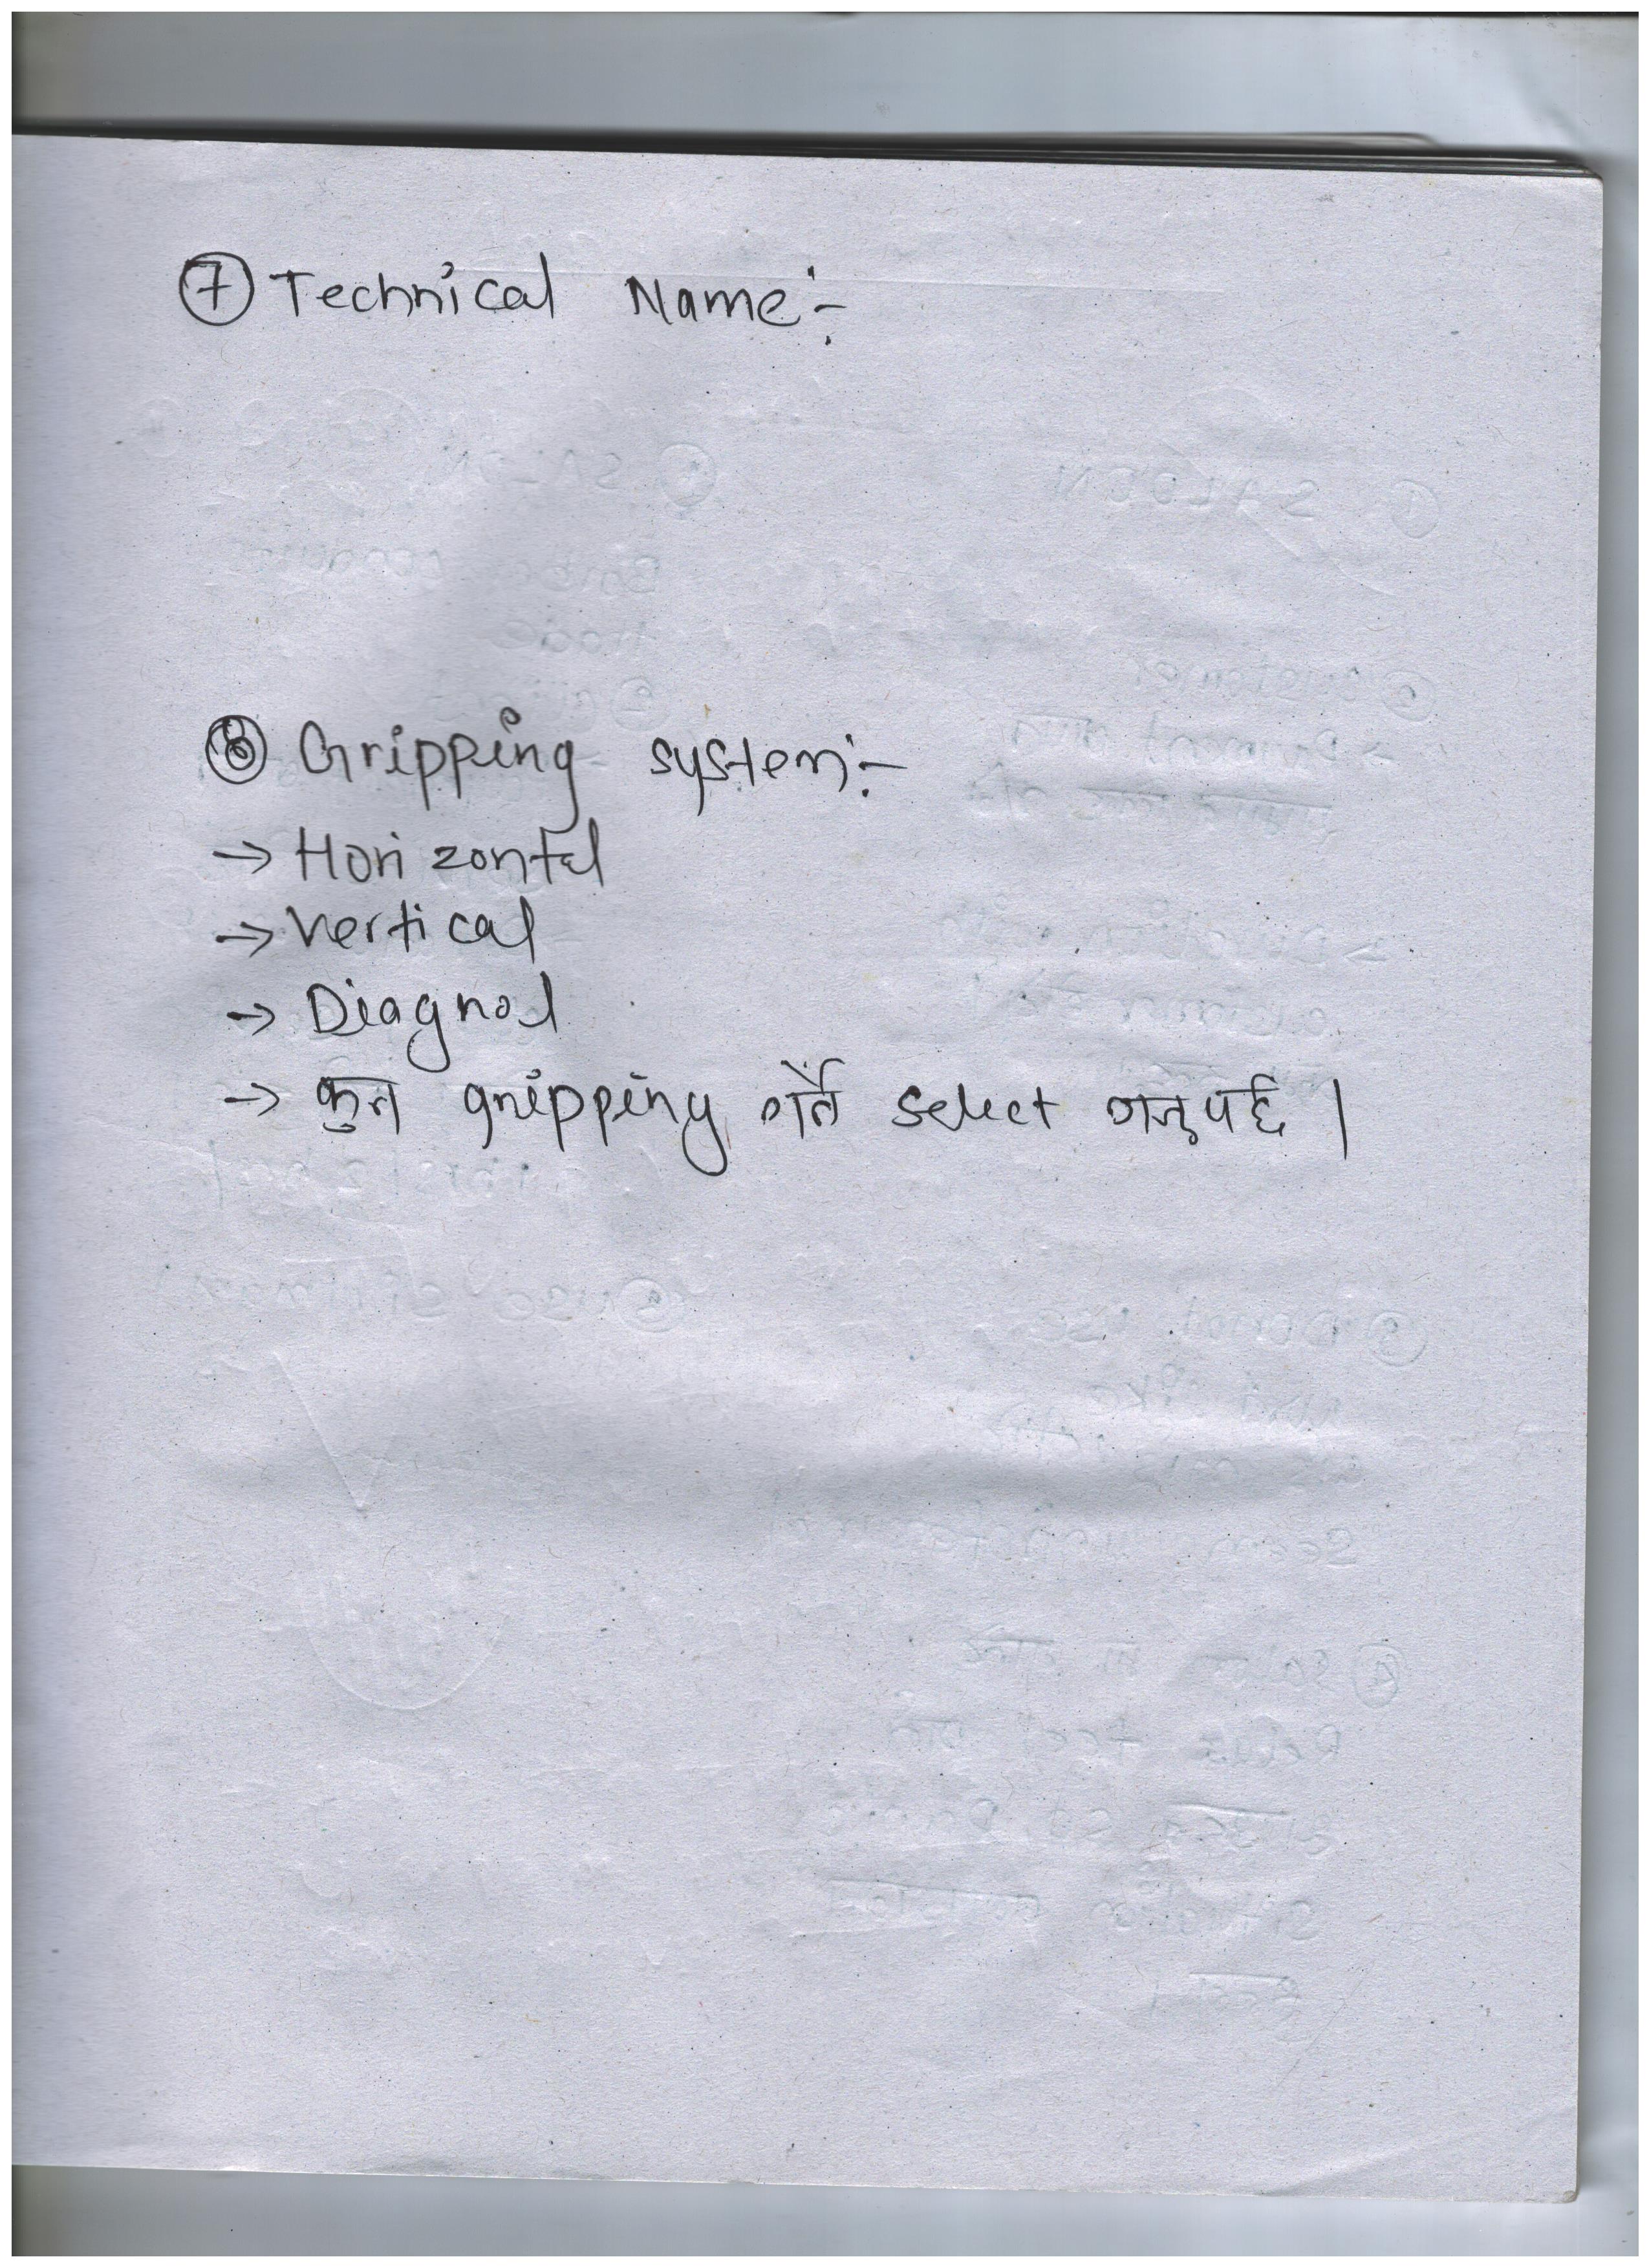 ⑦ Technical Name:-
⑧ Gripping system:-
→ Horizontal
→ Vertical
→ Diagnol
→ कुन gripping गर्ने select गर्नुपर्छ ।